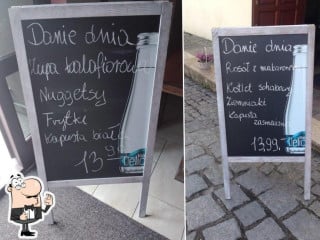 Danie dnia
Zupa kalafiorowa
Nuggetsy
Frytki
Kapusta biała
13,99
Danie dnia
Rosół z makaronem
Kotlet schabowy
Ziemniaki
Kapusta
zasmażana
13,99